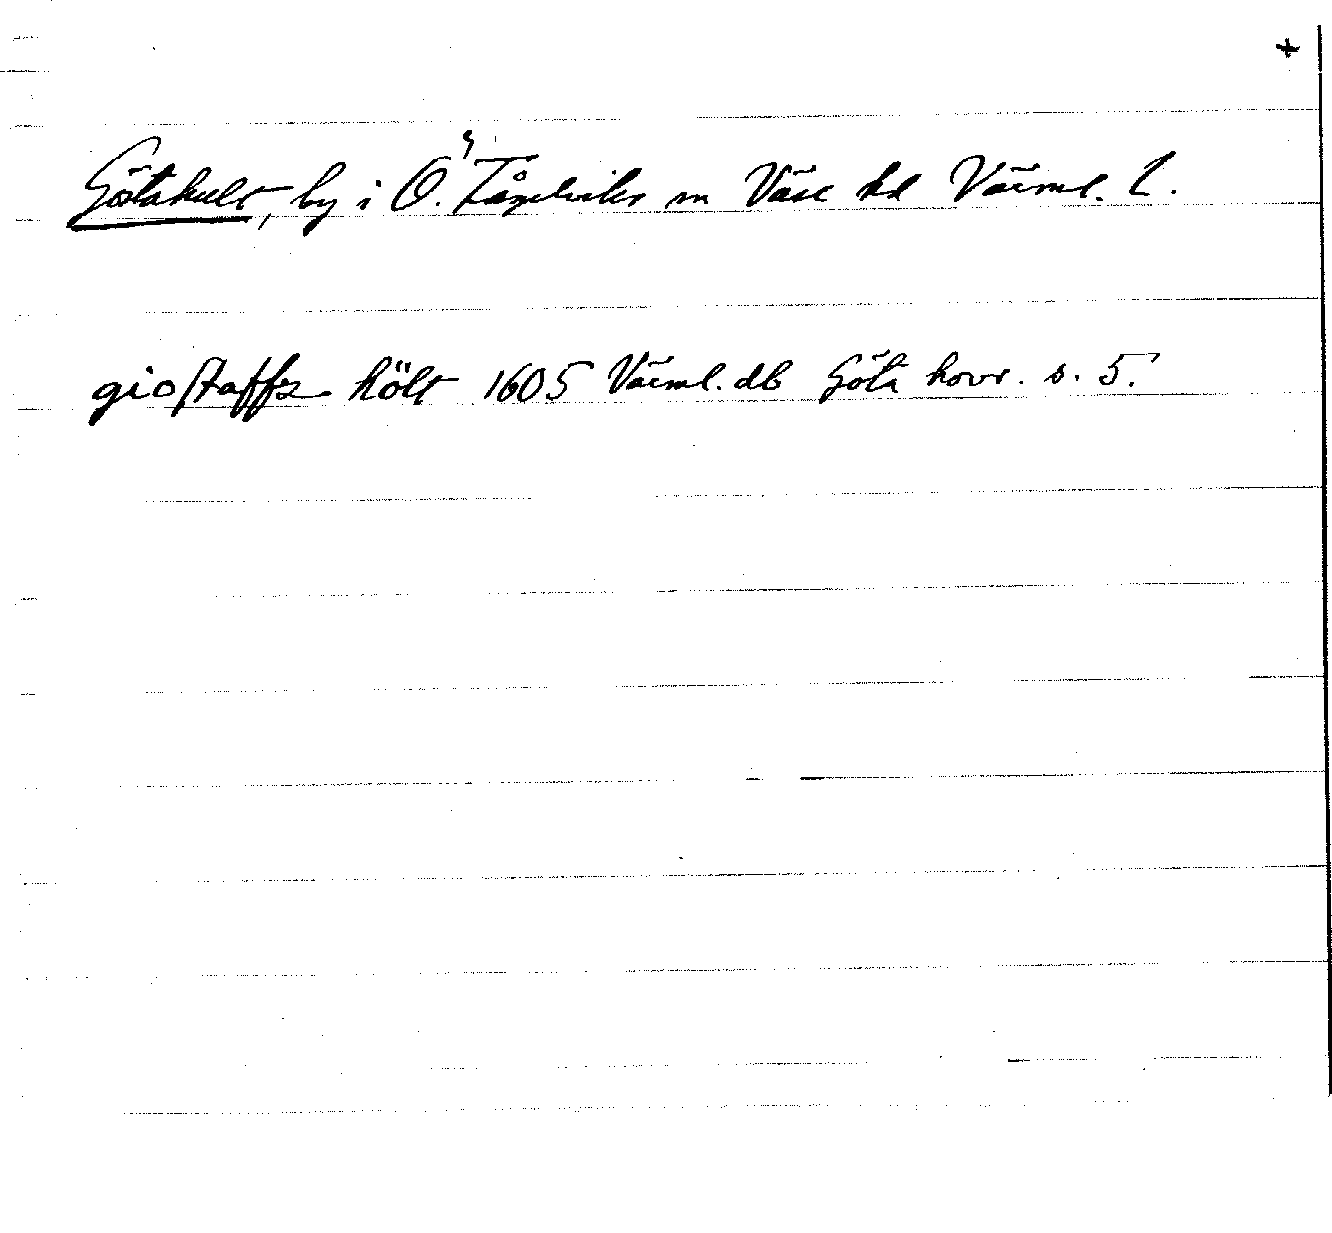 +
Götahult, by i Ö. Fågelviks sn Väse hd Värml. l.
giostaffz hölt 1605 Värml. db Göta hovr. s. 5.